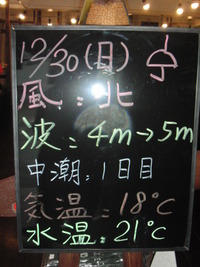 12/30(月)
風:北
波:4m→5m
中潮:1日目
気温:18℃
水温:21℃